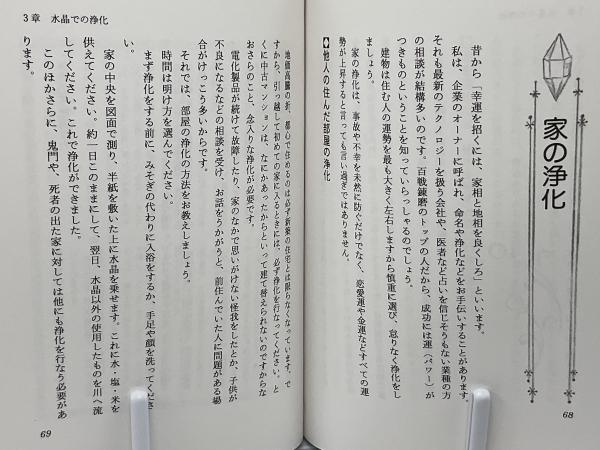 家の浄化
昔から「幸運を招くには、家相と地相を良くしろ」といいます。
私は、企業のオーナーに呼ばれ、命名や浄化などをお手伝いすることがあります。
それも最新のテクノロジーを扱う会社や、医者など占いを信じそうもない業種の方
の相談が結構多いのです。百戦錬磨のトップの人だから、成功には運（パワー）が
つきものということを知っていらっしゃるのでしょう。
建物は住む人の運勢を最も大きく左右しますから慎重に選び、怠りなく浄化をし
ましょう。
家の浄化は、事故や不幸を未然に防ぐだけでなく、恋愛運や金運などすべての運
勢が上昇すると言っても言い過ぎではありません。
【他人の住んだ部屋の浄化
68
3章 水晶での浄化
地価高騰の折、都心で住めるのは必ず新築の住宅とは限らなくなっています。で
すから、引っ越して初めての家に入るときには、必ず浄化を行なってください。と
くに中古マンションは、なにかあったからといって建て替えられないのですからな
おさらのこと、念入りな浄化が必要です。
電化製品が続けて故障したり、家のなかで思いがけない怪我をしたとか、子供が
不良になるなどの相談を受け、お話をうかがうと、前住んでいた人に問題がある場
合がけっこう多いからです。
それでは、部屋の浄化の方法をお教えしましょう。
時間は明け方を選んでください。
まず浄化をする前に、みそぎの代わりに入浴をするか、手足や顔を洗ってくださ
い。
家の中央を図面で測り、半紙を敷いた上に水晶を乗せます。これに水・塩・米を
供えてください。約一日このままにして、翌日、水晶以外の使用したものを川へ流
してください。これで浄化ができました。
このほかさらに、鬼門や、死者の出た家に対しては他にも浄化を行なう必要があ
ります。
69